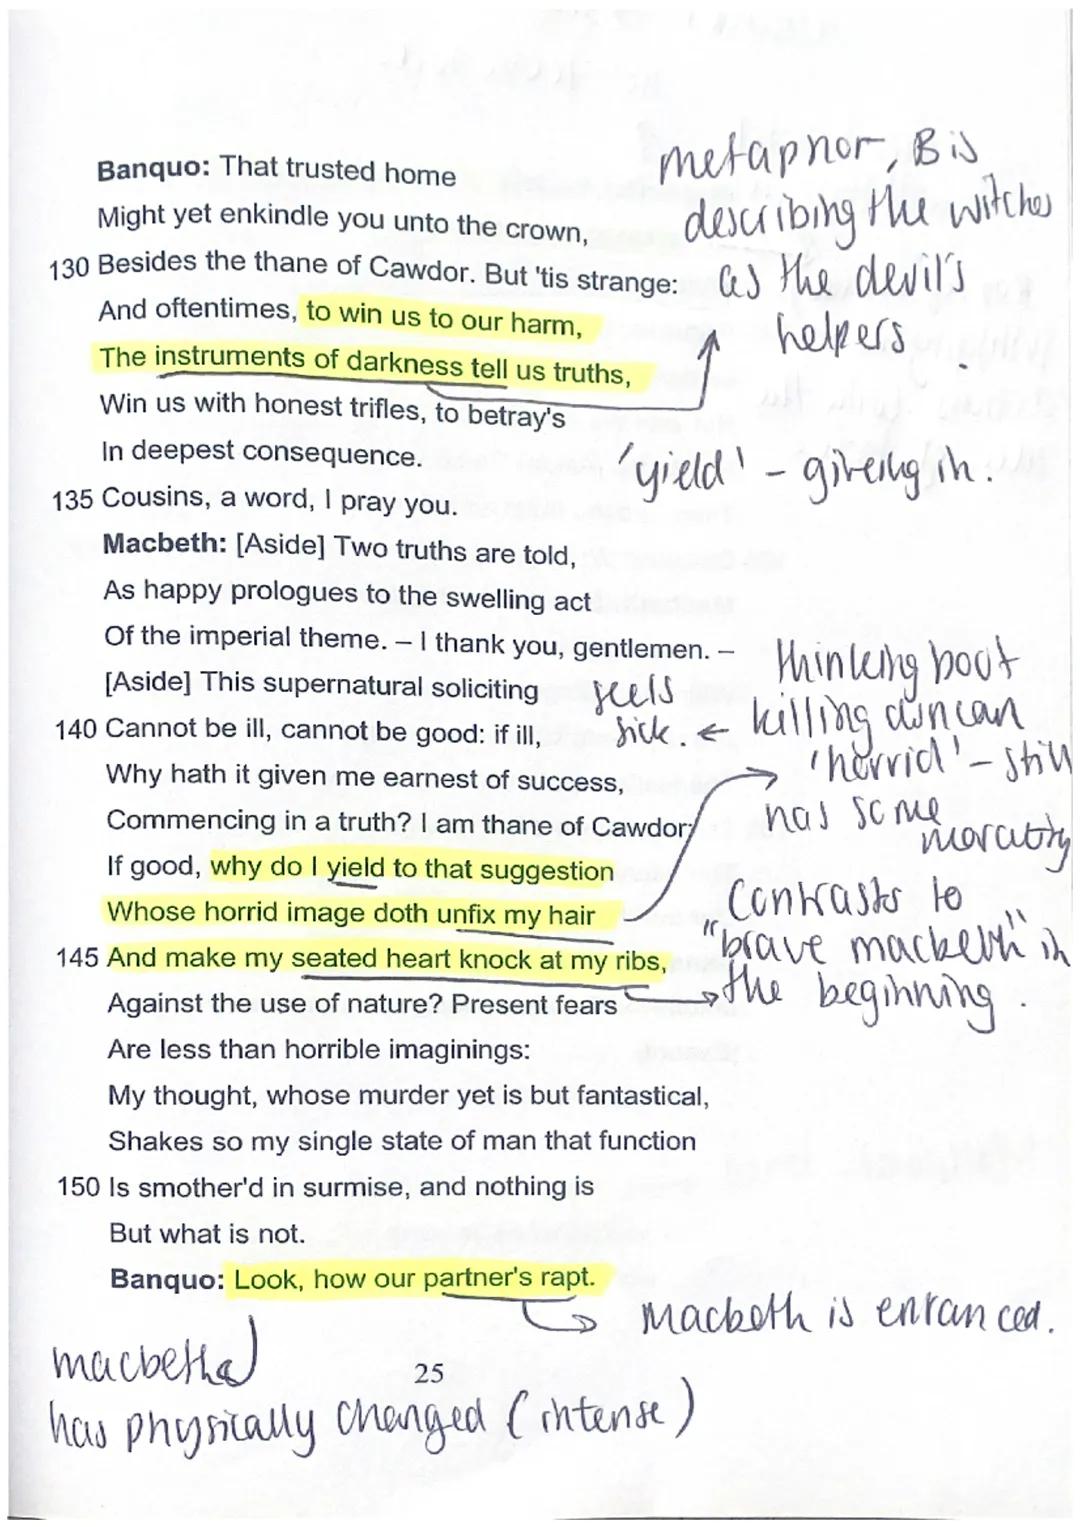 Banquo: That trusted home
Might yet enkindle you unto the crown,
130 Besides the thane of Cawdor. But 'tis strange:
And oftentimes, to win us to our harm,
The instruments of darkness tell us truths,
Win us with honest trifles, to betray's
In deepest consequence.
135 Cousins, a word, I pray you.
Macbeth: [Aside] Two truths are told,
As happy prologues to the swelling act
Of the imperial theme. – I thank you, gentlemen. –
[Aside] This supernatural soliciting
140 Cannot be ill, cannot be good: if ill,
Why hath it given me earnest of success,
Commencing in a truth? I am thane of Cawdor:
If good, why do I yield to that suggestion
Whose horrid image doth unfix my hair
145 And make my seated heart knock at my ribs,
Against the use of nature? Present fears
Are less than horrible imaginings:
My thought, whose murder yet is but fantastical,
Shakes so my single state of man that function
150 Is smother'd in surmise, and nothing is
But what is not.
Banquo: Look, how our partner's rapt.
25
metaphor, B is
describing the witches
as the devil's
helpers.
'yield' - giving in.
thinking bout
killing duncan
feels
sick. ←
'horrid' - still
has some
morality
Contrasts to
"brave macbeth" in
the beginning.
Macbeth is entranced.
macbeth
has physically changed (intense)